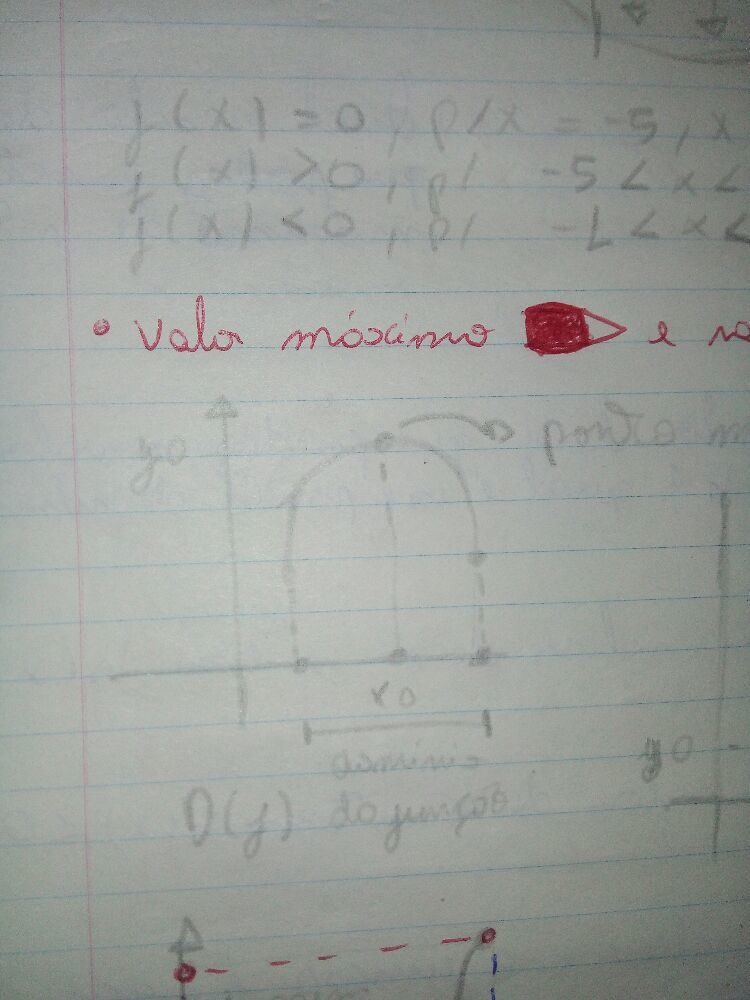 f(x) = 0, p/x = -5, x
f(x) > 0, p/ -5 < x <
f(x) < 0, p/ -1 < x <
• Valor máximo e
y0
ponto m
x0
y0
domínio
D(f) da função